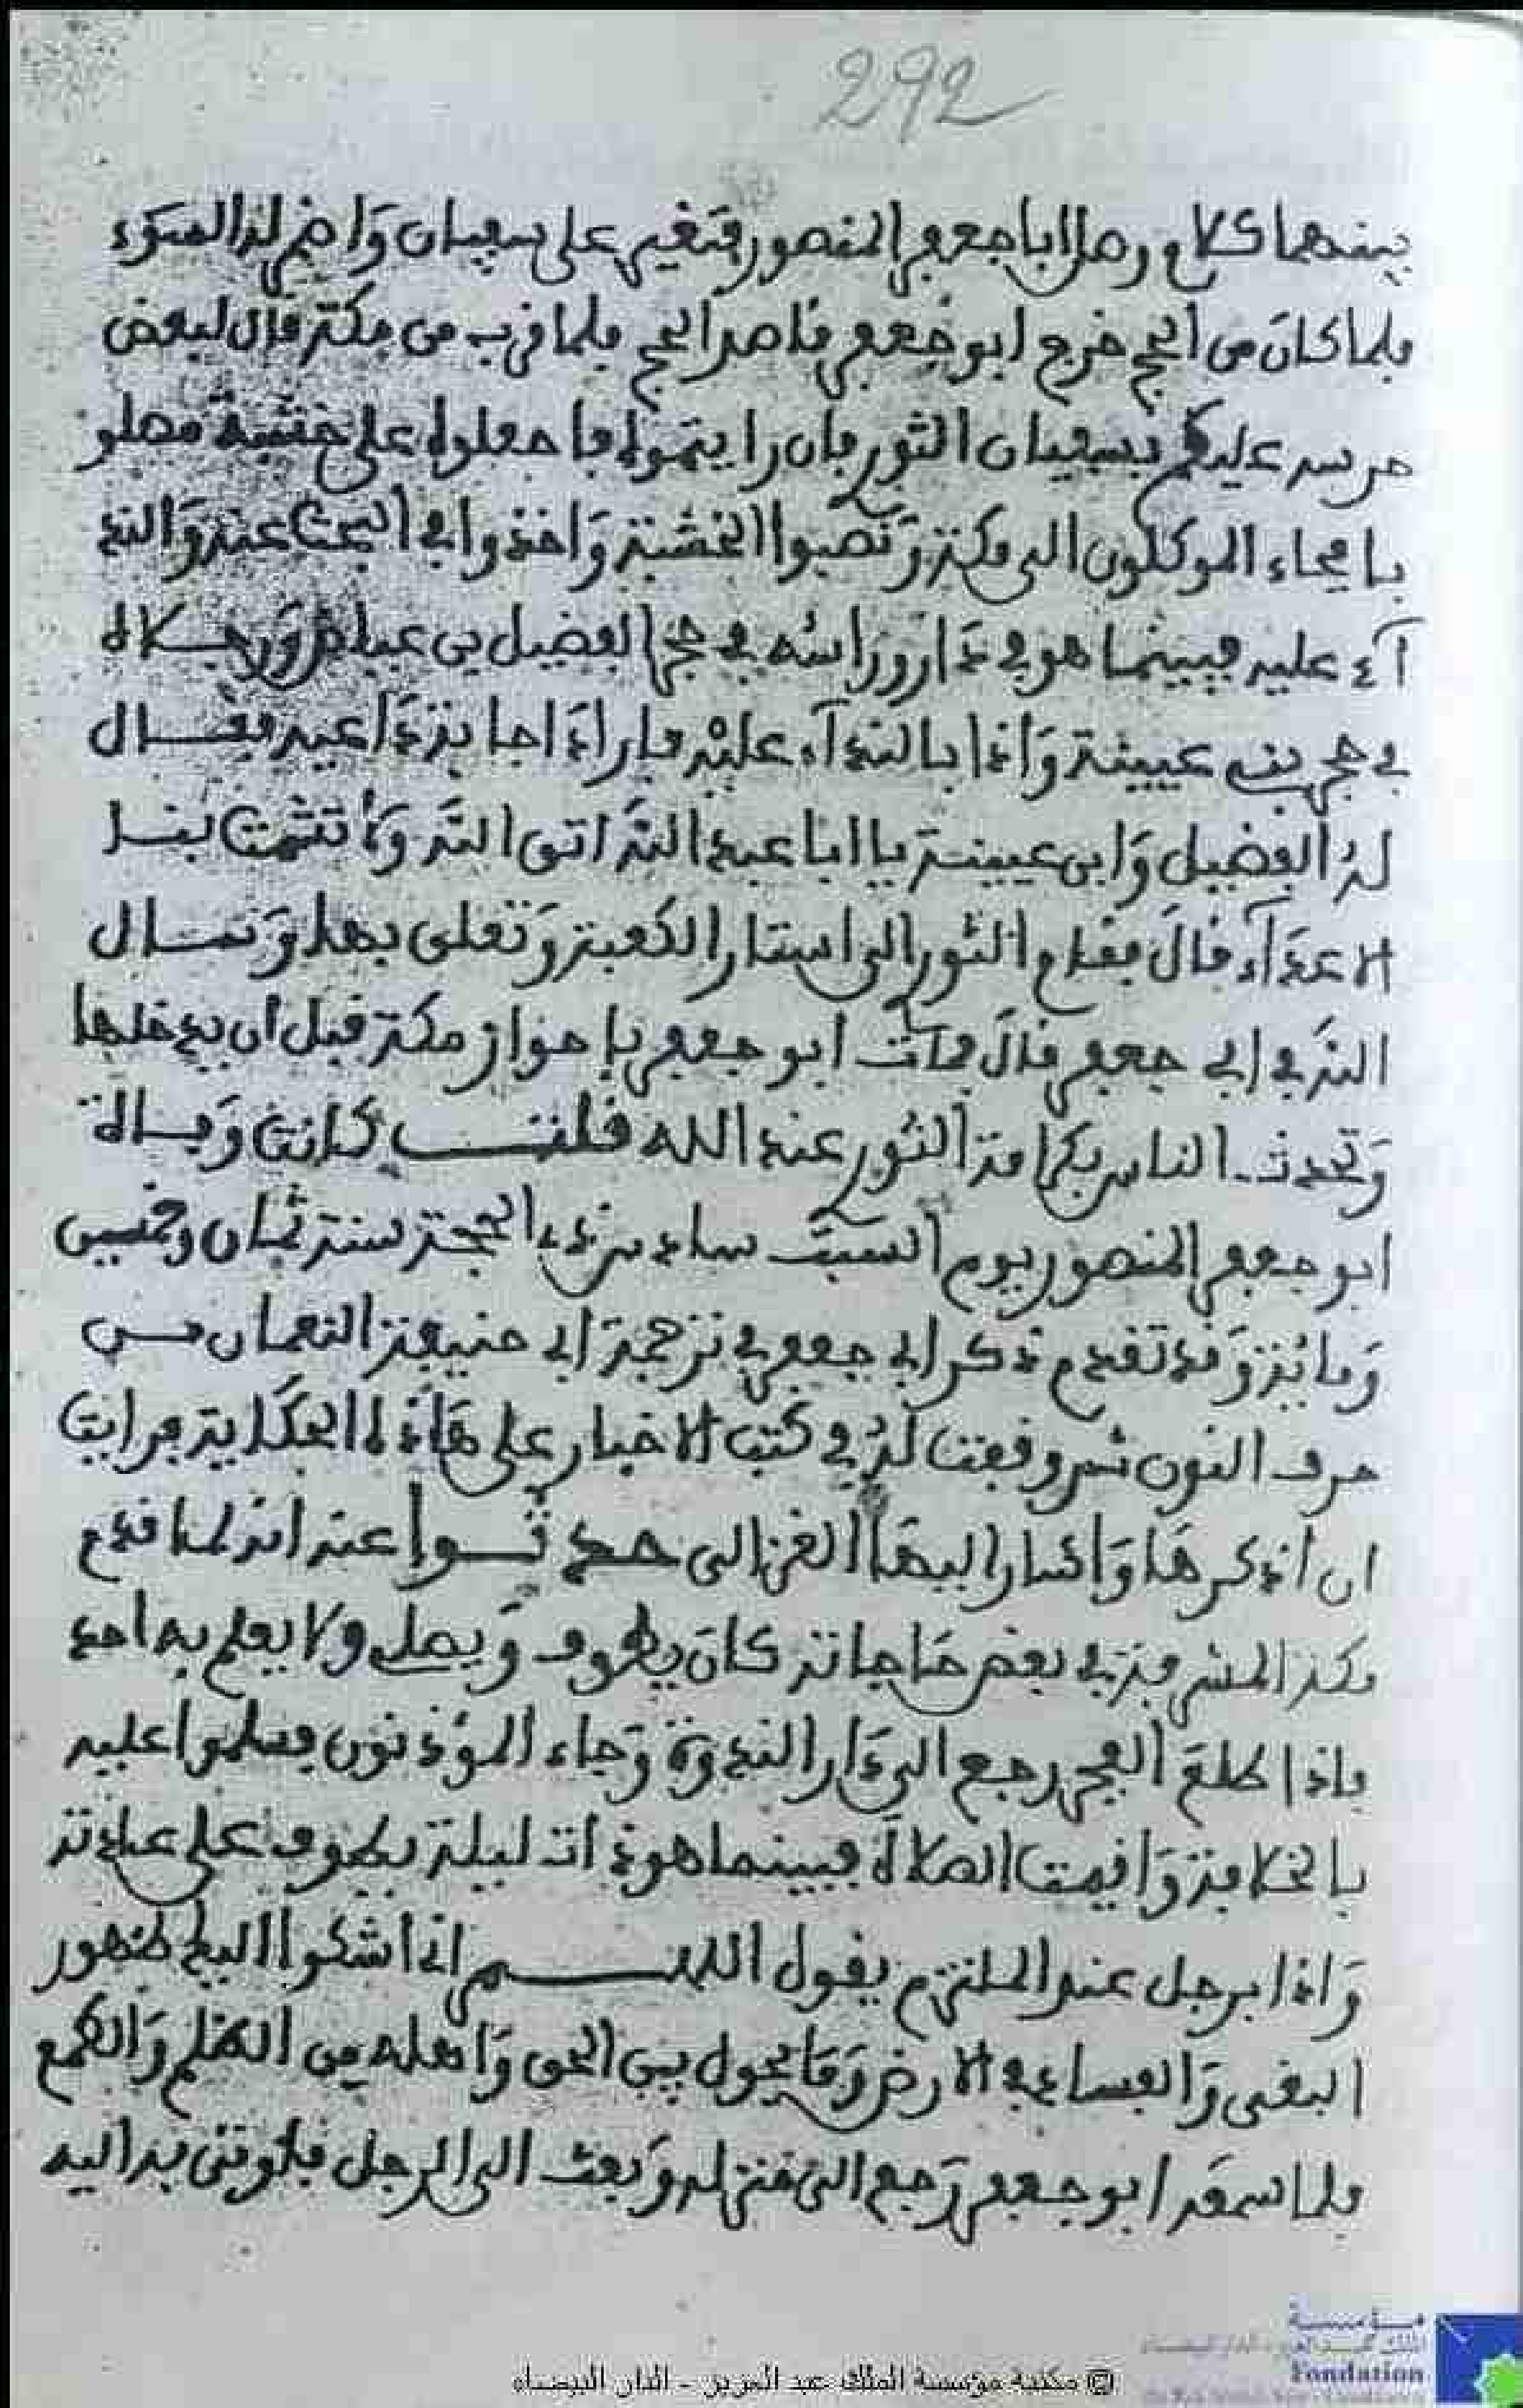 292
بينهما كلام وصل ابا جعفر المنصور فتغير على سفيان واضمر له السوء
فلما كان من الحج خرج ابو جعفر قاصد الحج فلما قرب من مكة قال لبعض
حرسه عليكم بسفيان الثور فان رايتموه فاجعلوه على خشبة مصلو
با فجاء الموكلون الى مكة ونصبوا الخشبة واخذوا في البحث عنه والند
آء عليه فبينما هو في دار وراسه في حجر الفضيل بن عياض ورجلاه
في حجر بن عيينة واذا بالندآء عليه فاراد اجابة داعيه فقال
له الفضيل وابن عيينة يا ابا عبد الله اتق الله ولا تشمت بنا
الاعدآء قال فقام الثور الى استار الكعبة وتعلق بها وتسال
الله في ابي جعفر قال فمات ابو جعفر باحواز مكة قبل ان يدخلها
وتحدث الناس بكرامة الثور عند الله قلت كانت وفاة
ابو جعفر المنصور يوم السبت سادس ذي الحجة سنة ثمان وخمسين
ومائة وقد تقدم ذكر ابي جعفر في ترجمة ابي حنيفة النعمان من
حرف النون ثم وقفت له في كتب الاخبار على هاذه الحكاية فرايت
ان اذكرها واشار اليها الغزالى حدثوا عنه انه لما قدم
مكة المشرفة في بعض حاجاته كان يطوف ويصلي ولا يعلم به احد
فاذا طلع الفجر رجع الى دار الندوة وجاء المؤذنون فسلموا عليه
بالخلافة واقيمت الصلاة فبينما هو ذات ليلة يطوف على عادته
واذا برجل عند الملتزم يقول اللهم انا اشكوا اليك ظهور
البغى والفساد في الارض وما يحول بين الحق واهله من الظلم والطمع
فلما سمعه ابو جعفر رجع الى منزله وبعث الى الرجل فلوتى به اليه
مؤسسة
الملك عبد العزيز - الدار البيضاء
Fondation
© مكتبة مؤسسة الملك عبد العزيز - الدار البيضاء